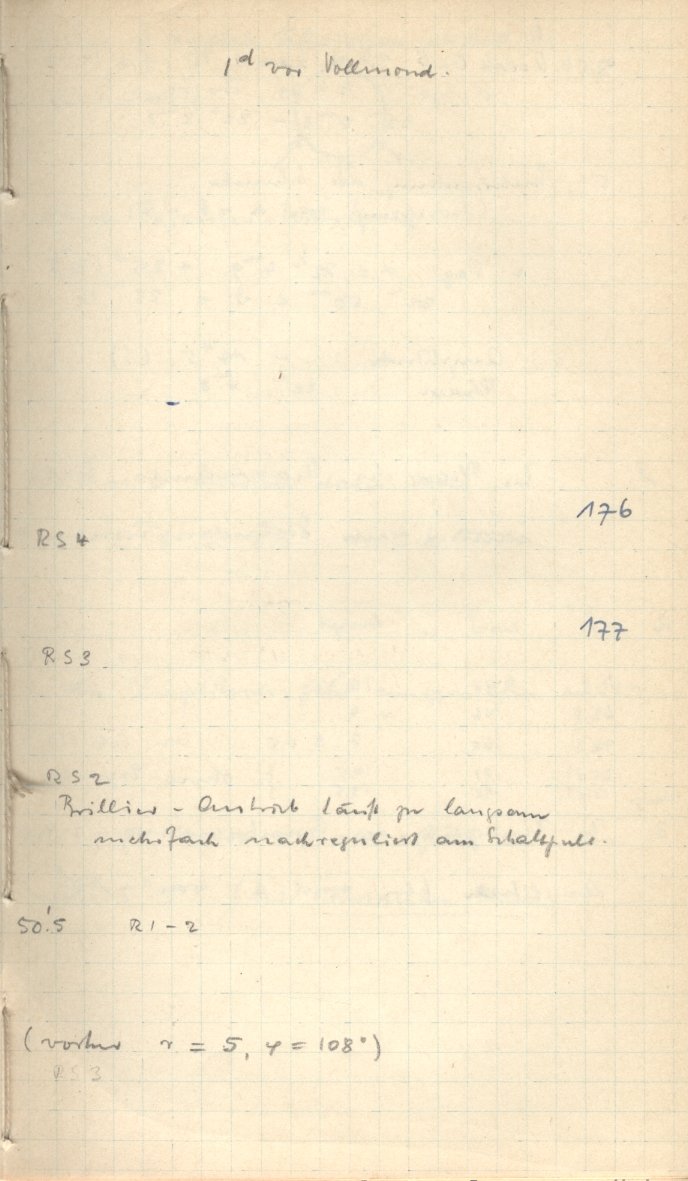 1d vor Vollmond.
176
RS 4
177
RS3
RS2
Brillier - Antrieb läuft zu langsam
mehrfach nachreguliert am Schaltpult.
50!5 R1-2
(vorher r = 5, φ = 108°)
RS3